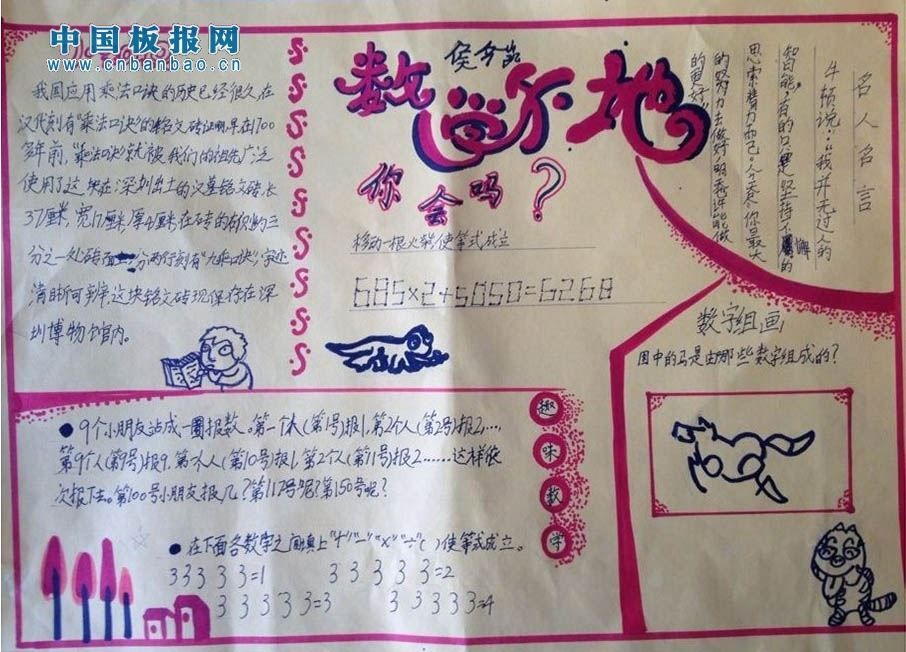 中国板报网
www.cnbanbao.cn
数学天地
我国应用乘法口诀的历史已经很久,在
汉代刻有"乘法口诀"的铭文砖证明,早在1700
多年前,"乘法口诀"就被我们的祖先广泛
使用了这
深圳出土的汉墓铭文砖长
37厘米,宽17厘米,厚4厘米,在砖的
三
分之一处砖面
分两行刻有"九乘口诀",字迹
清晰可辨,这块铭文砖现保存在深
圳博物馆内。
你会吗?
移动一根火柴使等式成立
685×2+5050=6268
名人名言
牛顿说:"我并无过人的
智能,有的只是坚持不懈的
思索精力而已。今天尽你最大
的努力去做好,明天你也许能做
的更好。"
数字组画
图中的马是由哪些数字组成的?
趣味数学
●9个小朋友站成一圈报数。第一个人(第1号)报1,第2个人(第2号)报2,…,
第9个人(第9号)报9,第
人(第10号)报1,第2个人(第11号)报2……这样依
次报下去。第100号小朋友报几?第112号呢?第150号呢?
●在下面各数字之间填上"+""-""×""÷"( )使等式成立。
3 3 3 3 3=1 3 3 3 3 3=2
3 3 3 3 3=3 3 3 3 3 3=4